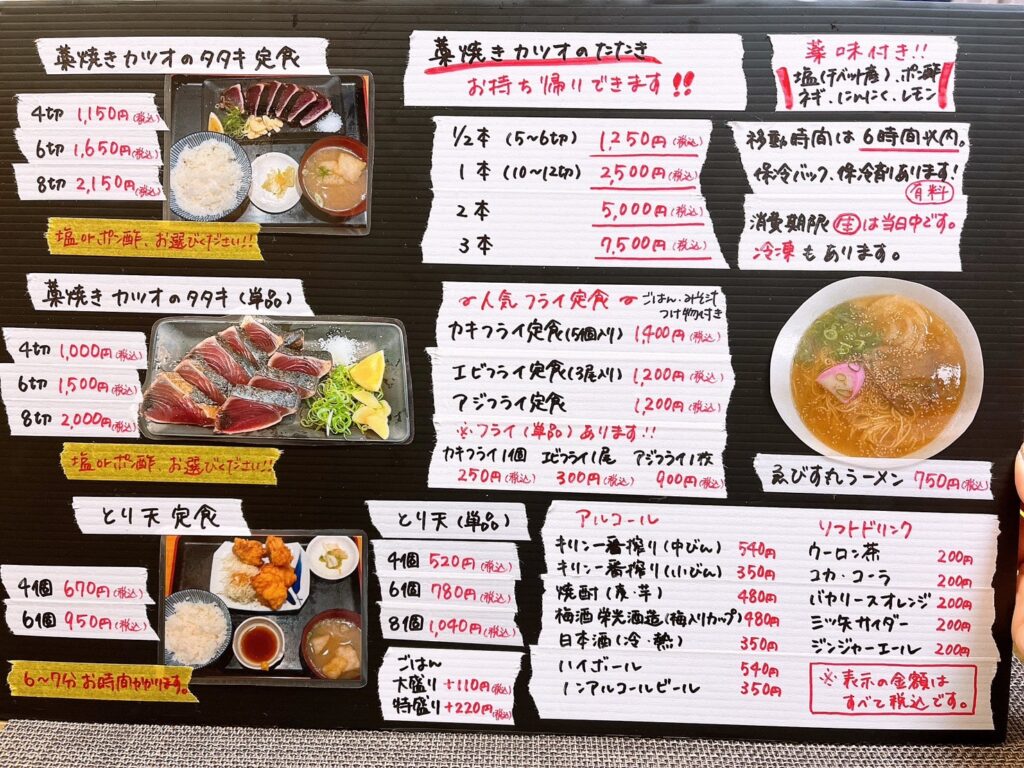 藁焼きカツオのタタキ定食
4切 1,150円(税込)
6切 1,650円(税込)
8切 2,150円(税込)
塩orポン酢、お選びください!!
藁焼きカツオのたたき
お持ち帰りできます!!
薬味付き!!
塩(チベット産)、ポン酢
ネギ、にんにく、レモン
1/2本 (5~6切) 1,250円(税込)
1本 (10~12切) 2,500円(税込)
2本 5,000円(税込)
3本 7,500円(税込)
移動時間は6時間以内。
保冷バック、保冷剤あります!
有料
消費期限 生は当日中です。
冷凍もあります。
藁焼きカツオのタタキ(単品)
4切 1,000円(税込)
6切 1,500円(税込)
8切 2,000円(税込)
塩orポン酢、お選びください!!
人気フライ定食
ごはん・みそ汁
つけ物付き
カキフライ定食(5個入り) 1,400円(税込)
エビフライ定食(3尾入り) 1,200円(税込)
アジフライ定食 1,200円(税込)
※フライ(単品)あります!!
カキフライ1個 エビフライ1尾 アジフライ1枚
250円(税込) 300円(税込) 900円(税込)
ゑびす丸ラーメン 750円(税込)
とり天定食
4個 670円(税込)
6個 950円(税込)
6~7分お時間かかります。
とり天(単品)
4個 520円(税込)
6個 780円(税込)
8個 1,040円(税込)
ごはん
大盛り +110円(税込)
特盛り +220円(税込)
アルコール
キリン一番搾り(中びん) 540円
キリン一番搾り(小びん) 350円
焼酎(麦・芋) 480円
梅酒 栄光酒造(梅入りカップ) 480円
日本酒(冷・熱) 350円
ハイボール 540円
ノンアルコールビール 350円
ソフトドリンク
ウーロン茶 200円
コカ・コーラ 200円
バヤリースオレンジ 200円
三ツ矢サイダー 200円
ジンジャーエール 200円
※表示の金額は
すべて税込です。